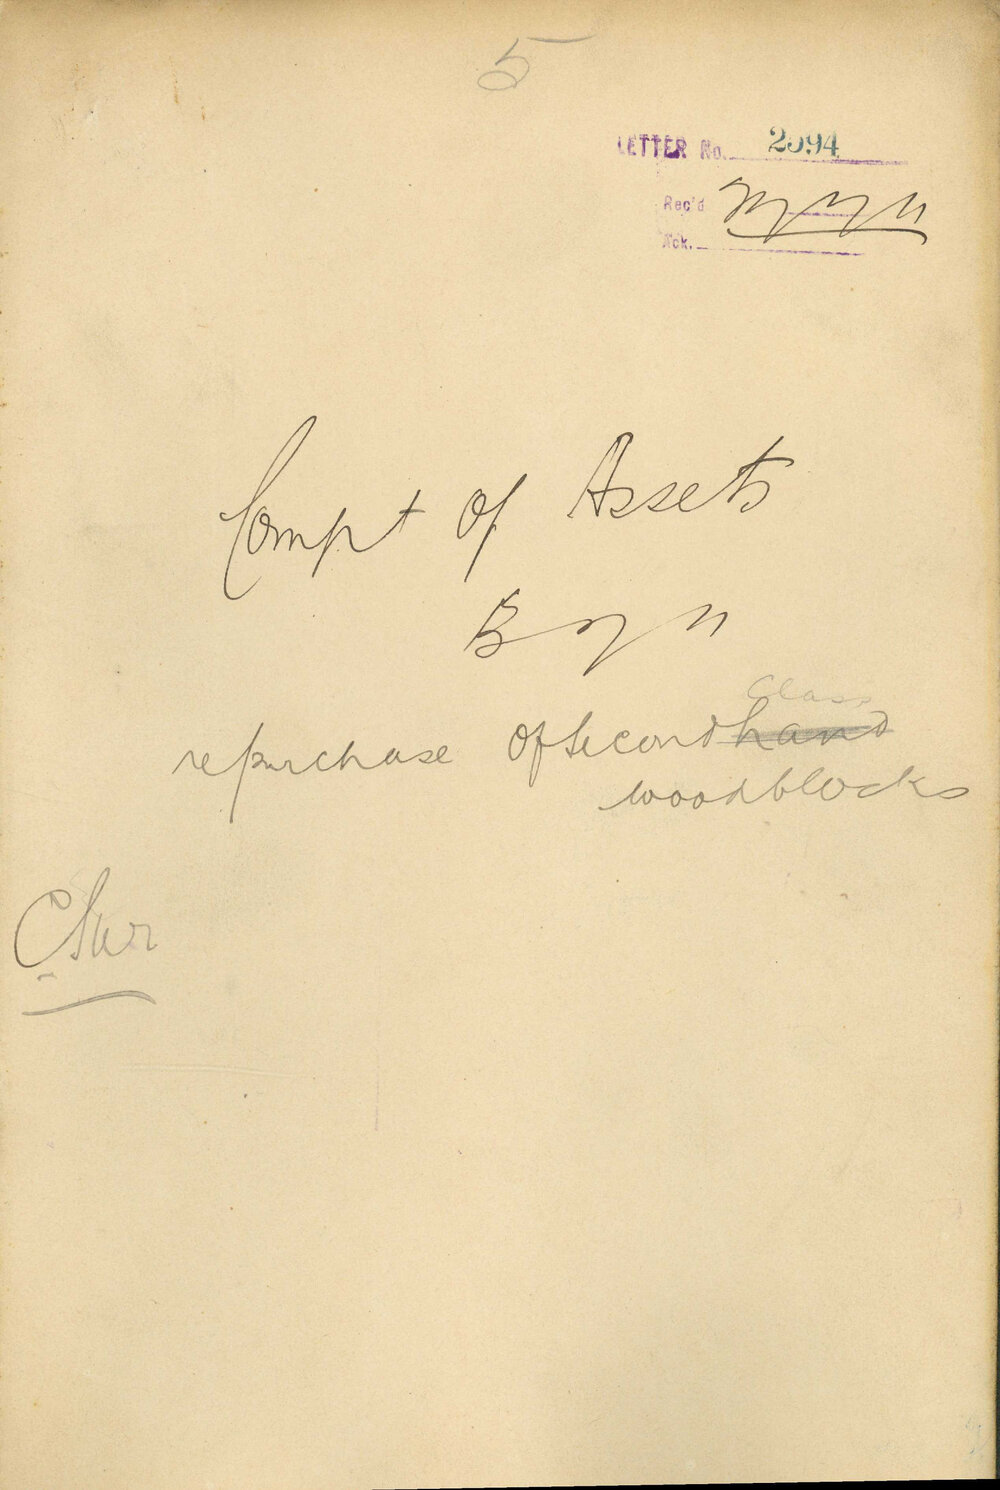 5
LETTER No. 2594
Rec'd
Ack.
Compt of Assets
Class
repurchase of second hand
woodblocks
C Sur